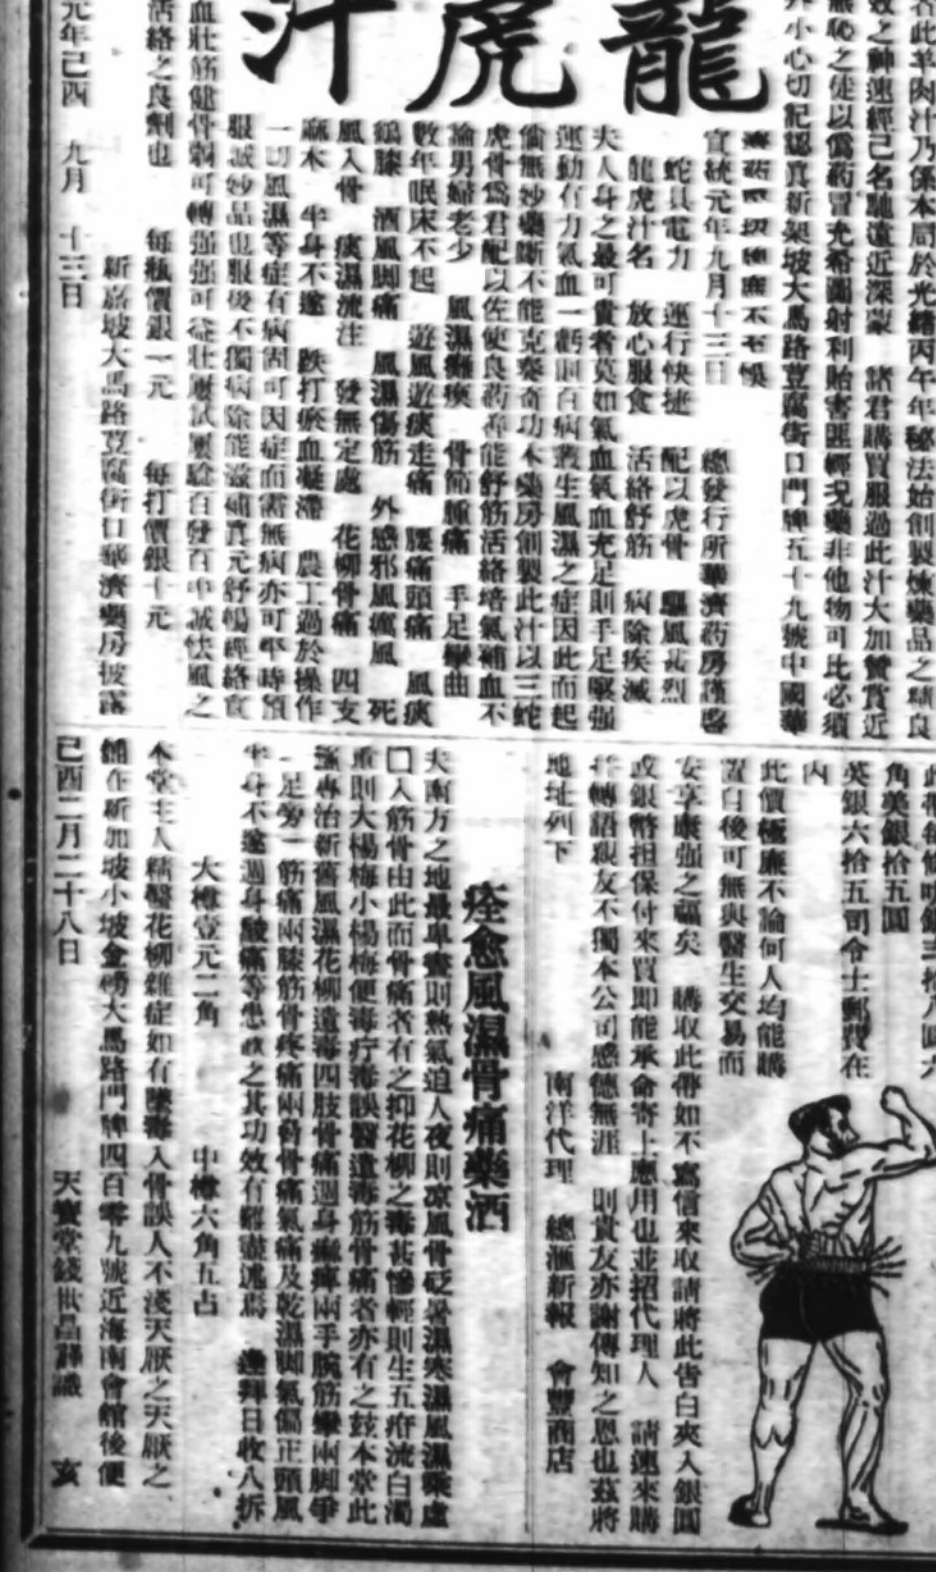 龍虎汁
名此羊肉汁乃係本局於光緒丙午年秘法始創製煉藥品之馴良
效之神速經已名馳遠近深蒙 諸君購買服過此汁大加贊賞近
無恥之徒以僞葯冒充希圖射利貽害匪輕況藥非他物可比必須
小心切記認真新架坡大馬路荳腐街口門牌五十九號中國華
宣統元年九月十三日 總發行所華濟葯房謹啓
蛇具電力 運行快捷 配以虎骨 驅風甚烈
龍虎汁名 放心服食 活絡舒筋 病除疾滅
夫人身之最可貴者莫如氣血氣血充足則手足堅强
運動有力氣血一虧則百病叢生風濕之症因此而起
倘無妙藥斷不能克奏奇功本藥房創製此汁以三蛇
虎骨爲君配以佐使良葯專能舒筋活絡培氣補血不
論男婦老少 風濕癱瘓 骨節腫痛 手足攣曲
數年眠床不起 遊風遊痰走痛 腰痛頭痛 風痰
鶴膝 酒風脚痛 風濕傷筋 外感邪風癘風 死
風入骨 痰濕流注 發無定處 花柳骨痛 四支
麻木 半身不遂 跌打瘀血凝滯 農工過於操作
一切風濕等症有病固可因症而需無病亦可平時預
服誠妙品也服後不獨病除能滋補真元舒暢經絡食
血壯筋健骨弱可轉强强可益壯屢試屢驗百發百中誠怯風之
活絡之良劑也 每瓶價銀一元 每打價銀十元
新嘉坡大馬路荳腐街口華濟藥房披露
元年己酉 九月 十三日
角美銀拾五圓
英銀六拾五司令士郵費在
內
此價極廉不論何人均能購
置自後可無與醫生交易而
安享康强之福矣 購取此帶如不寫信來取請將此告白夾入銀圓
或銀幣担保付來買即能承命寄上應用也並招代理人 請速來購
并轉語親友不獨本公司感德無涯 則貴友亦謝傳知之恩也茲將
地址列下
南洋代理 總滙新報 會豐商店
痊愈風濕骨痛藥酒
夫南方之地最卑晝則熱氣迫人夜則凉風骨砭暑濕寒濕風濕乘虛
口入筋骨由此而骨痛者有之抑花柳之毒甚慘輕則生五疳流白濁
重則大楊梅小楊梅便毒疔毒誤醫遺毒筋骨痛者亦有之茲本堂此
專治新舊風濕花柳遺毒四肢骨痛週身痲痺兩手腕筋攣兩脚爭
足旁一筋痛兩膝筋骨疼痛兩骨痛氣痛及乾濕脚氣偏正頭風
半身不遂週身酸痛等患飲之其功效有難盡述焉 逢拜日收八折
大樽壹元二角 中樽六角五占
本堂主人精醫花柳雜症如有墜毒入骨誤人不淺天厭之天厭之
舖在新加坡小坡金榜大馬路門牌四百零九號近海南會館後便
己酉二月二十八日 天寶堂錢世昌謹識 亥